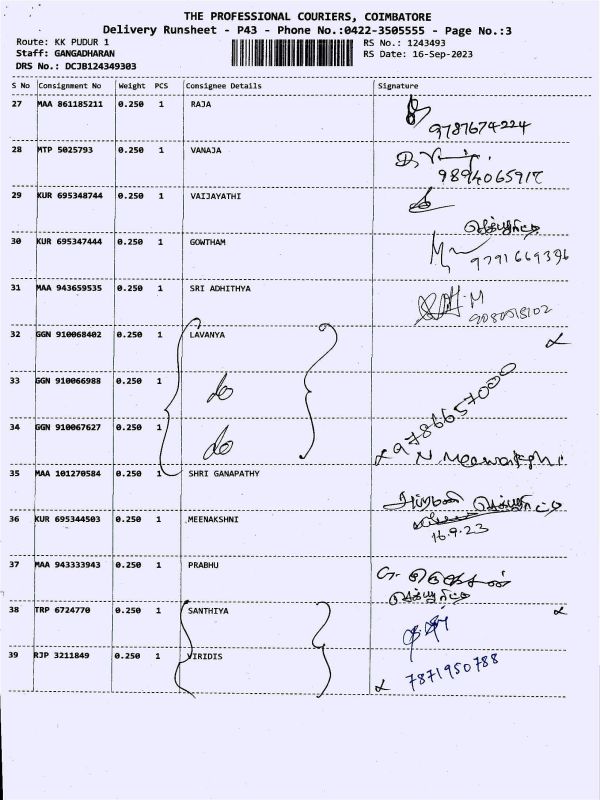 THE PROFESSIONAL COURIERS, COIMBATORE
Delivery Runsheet - P43 - Phone No.:0422-3505555 - Page No.:3
Route: KK PUDUR 1
RS No.: 1243493
Staff: GANGADHARAN
RS Date: 16-Sep-2023
DRS No.: DCJB124349303
S No Consignment No Weight PCS Consignee Details Signature
27 MAA 861185211 0.250 1 RAJA
9787674224
28 MTP 5025793 0.250 1 VANAJA
9894065917
29 KUR 695348744 0.250 1 VAIJAYATHI
செக்யூரிட்டி
30 KUR 695347444 0.250 1 GOWTHAM
9791669396
31 MAA 943659535 0.250 1 SRI ADHITHYA
32 GGN 910068402 0.250 1 LAVANYA
33 GGN 910066988 0.250 1
do
34 GGN 910067627 0.250 1
do
9786657000
N. Meenakshi
35 MAA 101270584 0.250 1 SHRI GANAPATHY
செக்யூரிட்டி
36 KUR 695344503 0.250 1 MEENAKSHNI
16.9.23
37 MAA 943333943 0.250 1 PRABHU
செக்யூரிட்டி
38 TRP 6724770 0.250 1 SANTHIYA
39 RJP 3211849 0.250 1 VIRIDIS
7871950788